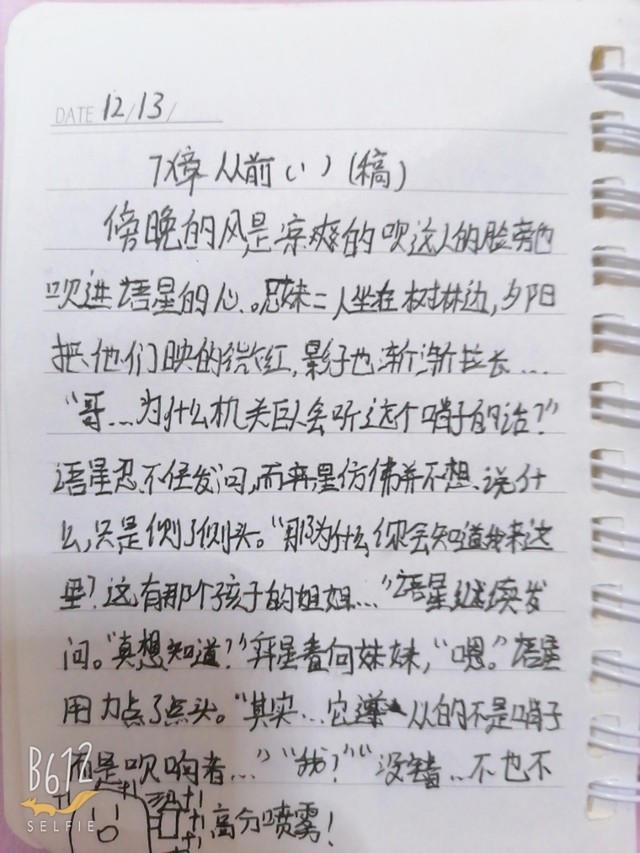 DATE 12/13/
7章 从前(1)(稿)
傍晚的风是凉爽的吹这人的脸旁也
吹进语星的心。兄妹二人坐在树林边,夕阳
把他们映的微红,影子也渐渐拉长...
“哥...为什么机关巨人会听这个哨子的话?”
语星忍不住发问,而弈星仿佛并不想说什
么,只是侧了侧头。“那为什么你会知道我来这
里?这有那个孩子的姐姐...”语星继续发
问。“真想知道?”弈星看向妹妹,“嗯。”语星
用力点了点头。“其实...它遵从的不是哨子
而是吹哨者...”“我?”“没错...不也不
高分喷雾!
B612
SELFIE